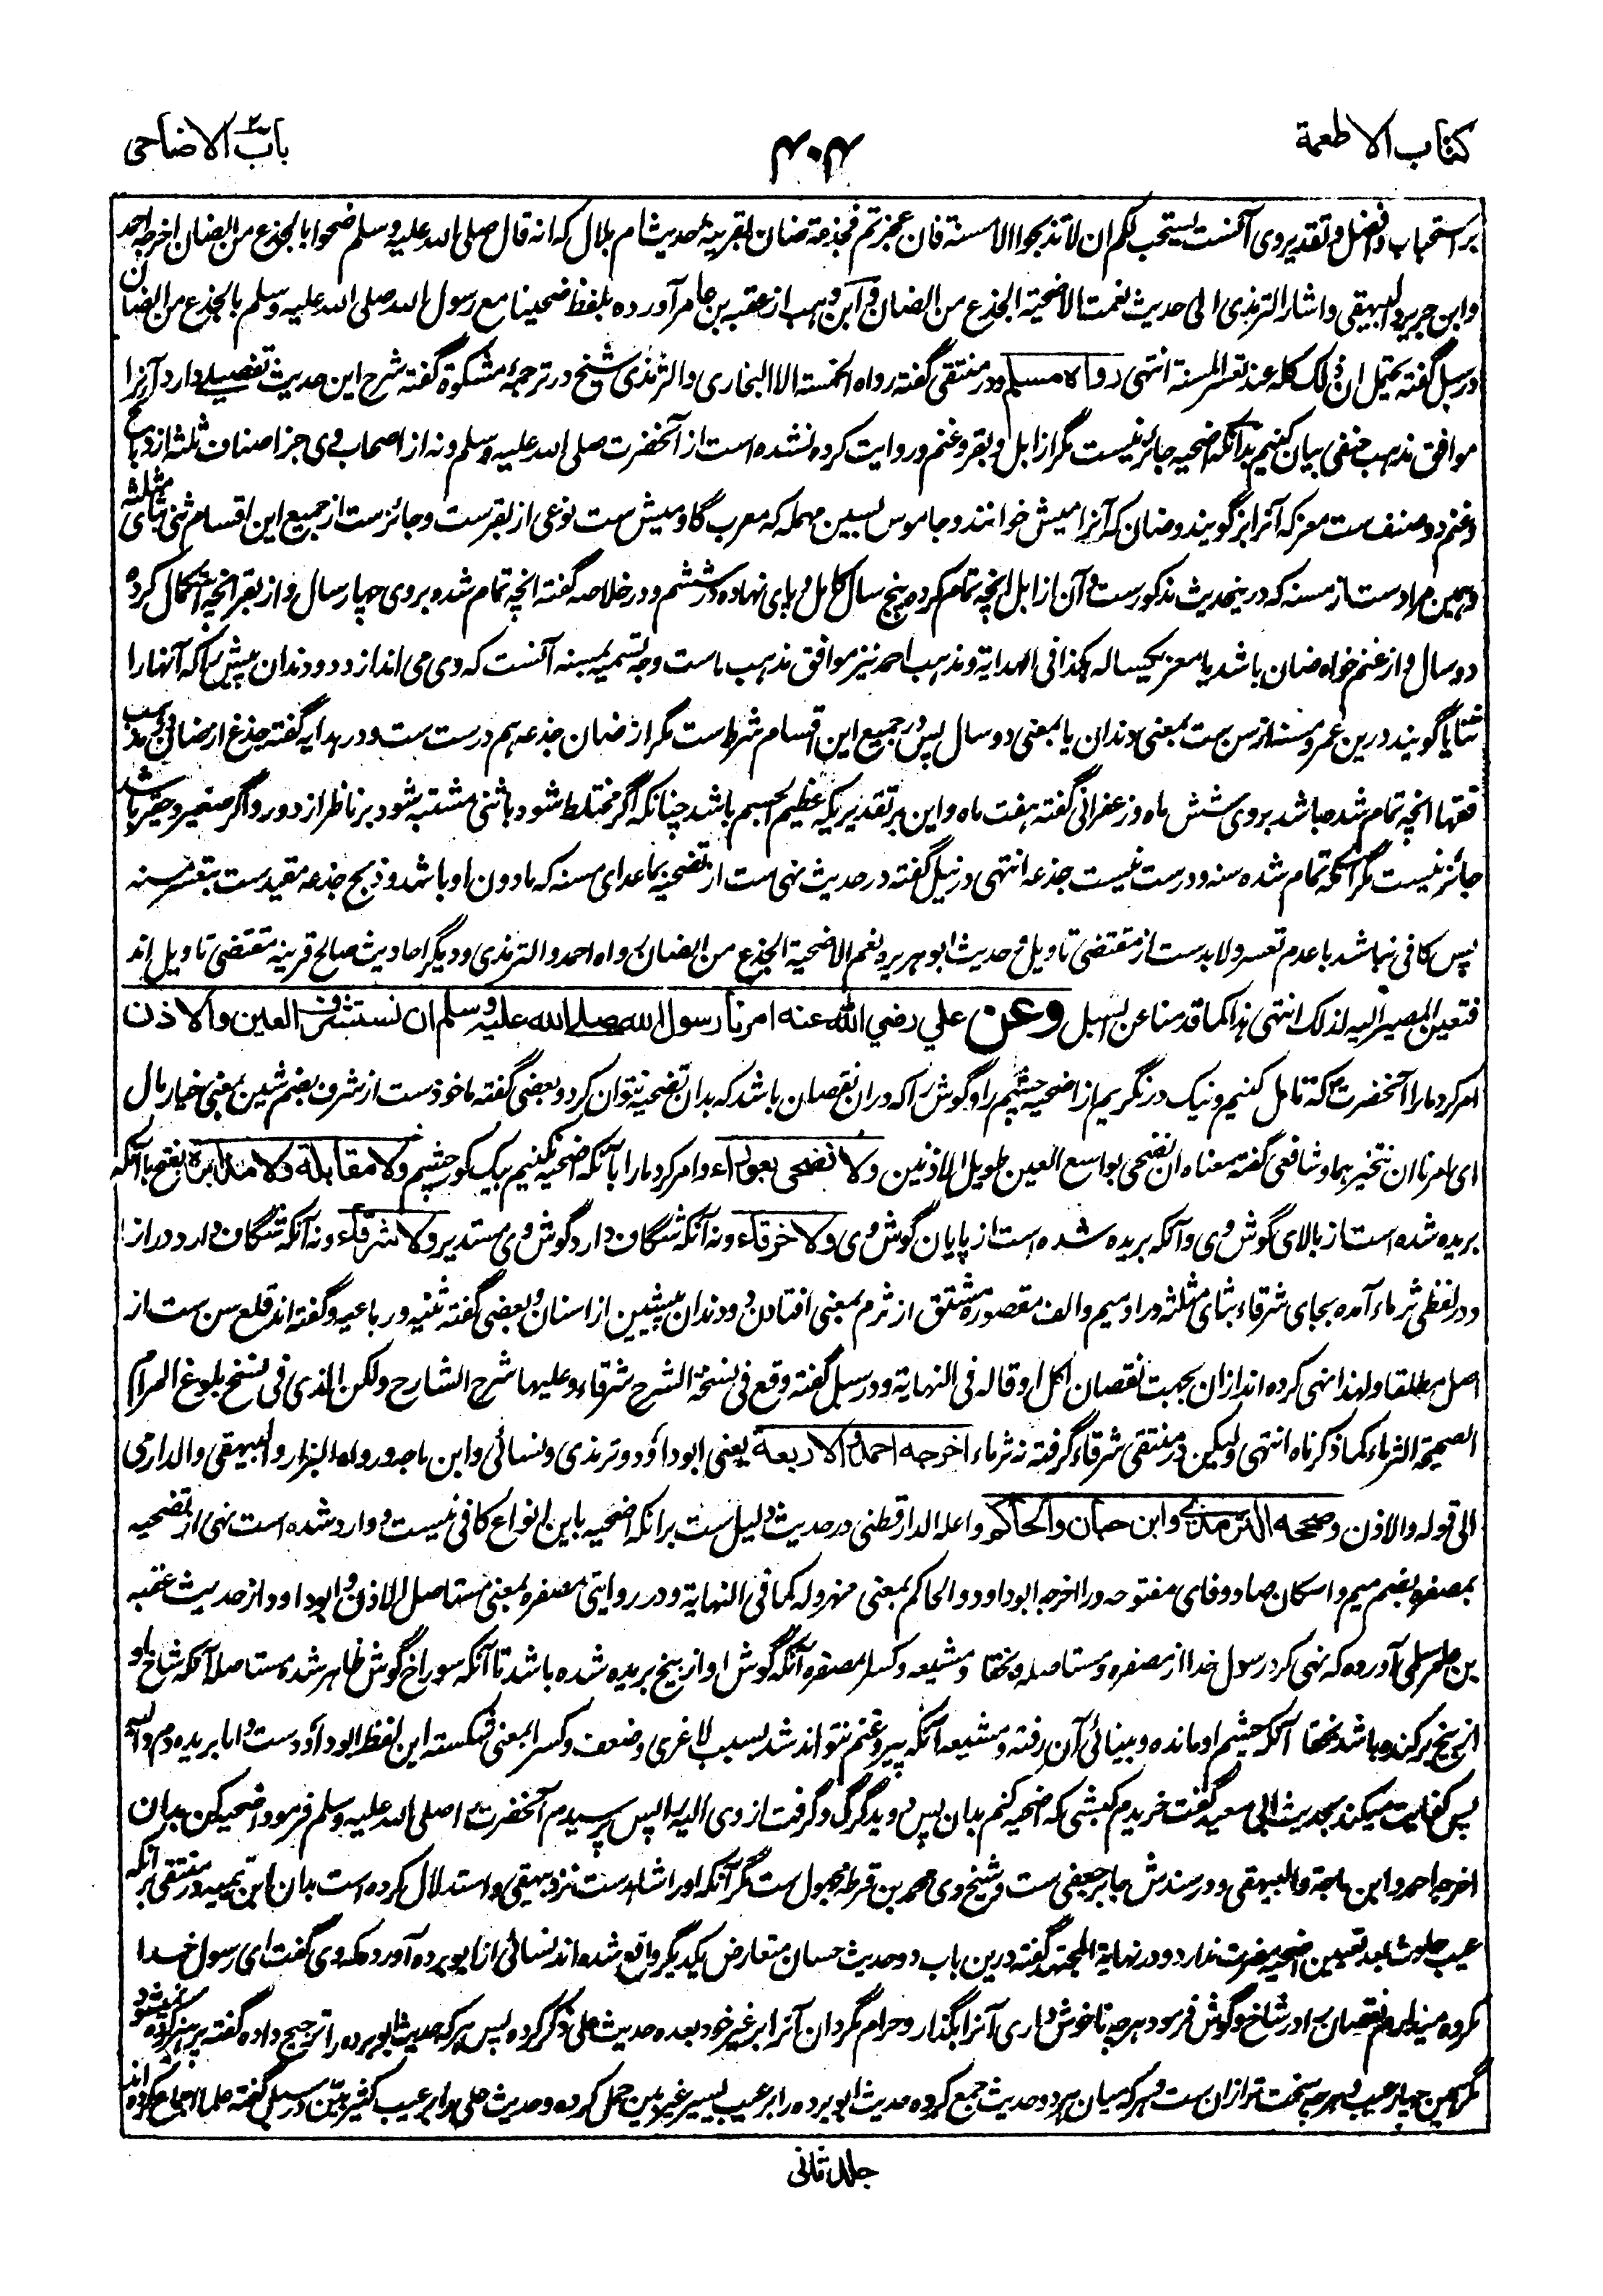 کتاب الاطعمة
۴۰۴
باب الاضاحی
بر استحباب و افضل و تقدیر وی آنست یستحب لکم ان لا تذبحوا الا مسنة فان عجزتم فجذعة ضان بقرینهٔ حدیث ام بلال که انه قال صلی الله علیه وسلم ضحوا بالجذع من الضان اخرجه احمد
و ابن جریر و البیهقی و اشار الترمذی الی حدیث نعمت الاضحیة الجذع من الضان و ابن وهب از عقبه بن عامر آورده بلفظ ضحینا مع رسول الله صلی الله علیه وسلم بالجذع من الضان
در سبل گفته یحتمل ان ذلک کله عند تعسر المسنة انتهی رواه مسلم و در منتقی گفته رواه الخمسة الا البخاری و الترمذی شیخ در ترجمهٔ مشکوة گفته شرح این حدیث تفصیلی دارد آنرا
موافق مذهب حنفی بیان کنیم بدانکه اضحیه جائز نیست مگر از ابل و بقر و غنم و روایت کرده نشده است از آنحضرت صلی الله علیه وسلم و نه از اصحاب وی جز اصناف ثلثه از ذبائح
و غنم دو صنف ست معز که آنرا بز گویند و ضان که آنرا میش خوانند و جاموس بسین مهمله که معرب گاومیش ست نوعی از بقرست و جائزست از جمیع این اقسام ثنی بثای مثلثه
و همین مرادست از مسنه که درینحدیث مذکورست و آن از ابل انچه تمام کرده پنج سال کامل و پای نهاده در ششم و در خلاصه گفته انچه تمام شده بر وی چهار سال و از بقر انچه اکمال کرده
دو سال و از غنم خواه ضان باشد یا معز یکساله هکذا فی الهدایة و مذهب احمد نیز موافق مذهب ماست وجه تسمیه بمسنه آنست که وی می اندازد دو دندان پیشین را که آنها را
ثنایا گویند درین عمر و مسنه از سن ست بمعنی دندان یا بمعنی دو سال پس در جمیع این اقسام شرط ست مگر از ضان جذعه هم درست ست و در هدایه گفته جذع از ضان در مذهب
فقها انچه تمام شده باشد بر وی شش ماه و زعفرانی گفته هفت ماه و این بر تقدیریکه عظیم الجسم باشد چنانکه اگر مختلط شود باثنی مشتبه شود بر ناظر از دور و اگر صغیر و حقیر باشد
جائز نیست مگر آنکه تمام شده سنه و درست نیست جذعه انتهی در نیل گفته در حدیث نهی ست از تضحیه بماعدای مسنه که مادون او باشد و ذبح جذعه مقیدست بتعسر مسنه
پس کافی نباشد با عدم تعسر و لابدست از مقتضی تاویل و حدیث ابو هریره نعم الاضحیة الجذع من الضان رواه احمد و الترمذی و دیگر احادیث صالح قرینه مقتضی تاویل اند
فتعین المصیر الیه لذلک انتهی هذا کما قدمنا عن السبل وعن علي رضي الله عنه امرنا رسول الله صلی الله علیه وسلم ان نستشرف العین والاذن
امر کرد ما را آنحضرت که تامل کنیم و نیک در نگریم از اضحیه چشم را و گوش را که در ان نقصان باشد که بدان تضحیه نتوان کرد و بعضی گفته ماخوذست از شرف بضم شین بمعنی خیار مال
ای امرنا ان نتخیرهما و شافعی گفته معناه ان نضحی بواسع العین طویل الاذنین ولا نضحی بعوراء و امر کرد ما را بآنکه اضحیه نکنیم بیک کور چشم ولا مقابلة ولا مدابرة بفتح با آنکه
بریده شده است از بالای گوش وی و آنکه بریده شده است از پایان گوش وی ولا خرقاء و نه آنکه شگاف دارد گوش وی مستدیر ولا شرقاء و نه آنکه شگاف دارد دراز
و در لفظی ثرماء آمده بجای شرقاء بثای مثلثه و را و میم و الف مقصوره مشتق از ثرم بمعنی افتادن دو دندان پیشین از اسنان و بعضی گفته ثنیه و رباعیه و گفته اند قلع سن ست از
اصل مطلقا و لهذا نهی کرده اند از ان بجهت نقصان اکل او قاله فی النهایة و در سبل گفته وقع فی نسخة الشرح شرقاء و علیها شرح الشارح ولکن الذی فی نسخ بلوغ المرام
الصحیحة الثرماء کما ذکرناه انتهی و لیکن در منتقی شرقاء گرفته نه ثرماء اخرجه احمد والاربعة یعنی ابو داؤد و ترمذی و نسائی و ابن ماجه و رواه البزار و البیهقی و الدارمی
الی قوله و الاذن وصححه الترمذي وابن حبان والحاکم و اعله الدارقطنی در حدیث دلیل ست بر انکه اضحیه باین انواع کافی نیست و وارد شده است نهی از تضحیه
بمصفره بضم میم و اسکان صاد و فای مفتوحه و را اخرجه ابو داود و الحاکم بمعنی مهزوله کما فی النهایة و در روایتی مصفره بمعنی مستاصل الاذن و ابو داود از حدیث عقبه
بن سلمی آورده که نهی کرد رسول خدا از مصفره و مستاصله و بخقا و مشیعه و کسرا مصفره آنکه گوش او از بیخ بریده شده باشد تا آنکه سوراخ گوش ظاهر شده مستاصله آنکه شاخ او
از بیخ برکنده باشد بخقا آنکه چشم او مانده و بینائی آن رفته و مشیعه آنکه پیرو غنم نتواند شد بسبب لاغری و ضعف و کسرا بمعنی شکسته این لفظ ابو داؤدست و اما بریده دم و الیه
پس کفایت میکند بحدیث ابی سعید گفت خریدم کبشی که اضحیه کنم بدان پس دوید گرگ و گرفت از وی الیه را پس پرسیدم آنحضرت را صلی الله علیه وسلم فرمود اضحیه کن بدان
اخرجه احمد و ابن ماجة و البیهقی و در سندش جابر جعفی ست و شیخ وی محمد بن قرظه مجهول ست مگر آنکه او را شاهدست نزد بیهقی و استدلال کرده است بدان ابن تیمیه در منتقی بر آنکه
عیب حادث بعد تعیین اضحیه مضرت ندارد و در نهایة المجتهد گفته درین باب دو حدیث حسان متعارض یکدیگر واقع شده اند نسائی از ابو برده آورده که وی گفت ای رسول خدا
مکروه میدارم نقصان را در شاخ و گوش فرمود هر چه ناخوش داری آنرا بگذار و حرام مگردان آنرا بر غیر خود بعده حدیث علی ذکر کرده پس هر که حدیث ابو برده را ترجیح داده گفته پرهیز کرده نمیشود
مگر همین چهار عیب و هر چه سخت تر از ان ست و هر که میان هر دو حدیث جمع کرده حدیث ابو برده را بر عیب یسیر غیر بین حمل کرده و حدیث علی را بر عیب کثیر بین در سبل گفته علما اجماع کرده اند
جلد ثانی